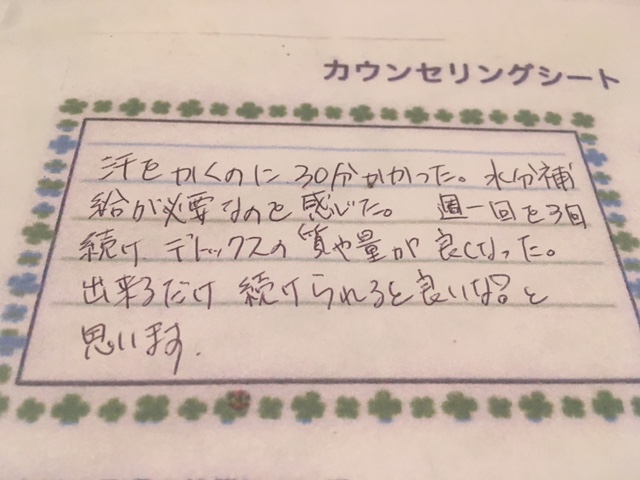 カウンセリングシート
汗をかくのに30分かかった。水分補
給が必要なのを感じた。 週一回を3回
続け デトックスの質や量が良くなった。
出来るだけ 続けられると良いな?と
思います.